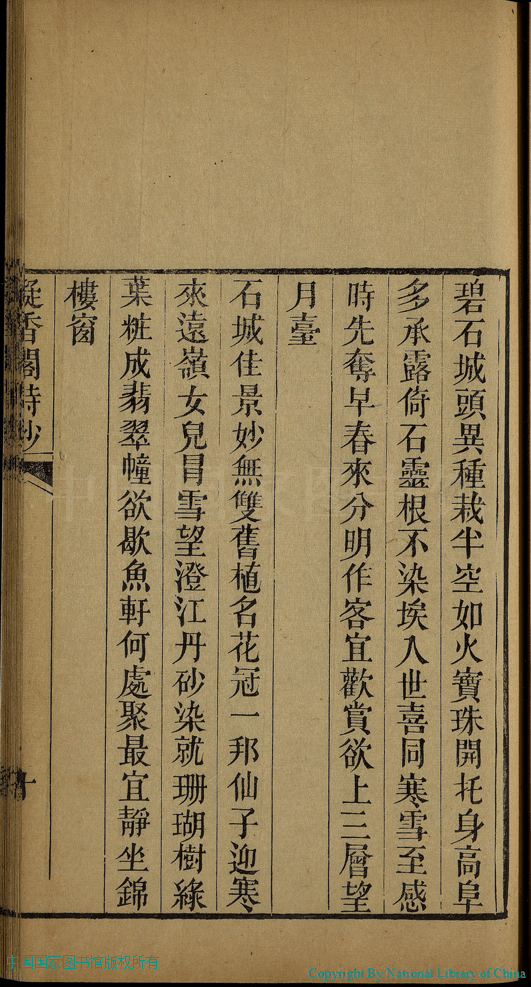 碧石城頭異種栽半空如火寶珠開托身高阜
多承露倚石靈根不染埃入世喜同寒雪至感
時先奪早春來分明作客宜歡賞欲上三層望
月臺
石城佳景妙無雙舊植名花冠一邦仙子迎寒
來遠嶺女兒冒雪望澄江丹砂染就珊瑚樹綠
葉粧成翡翠幢欲歇魚軒何處聚最宜靜坐錦
樓窗
凝香閣詩抄
十
中国国家图书馆版权所有
Copyright By National Library of China